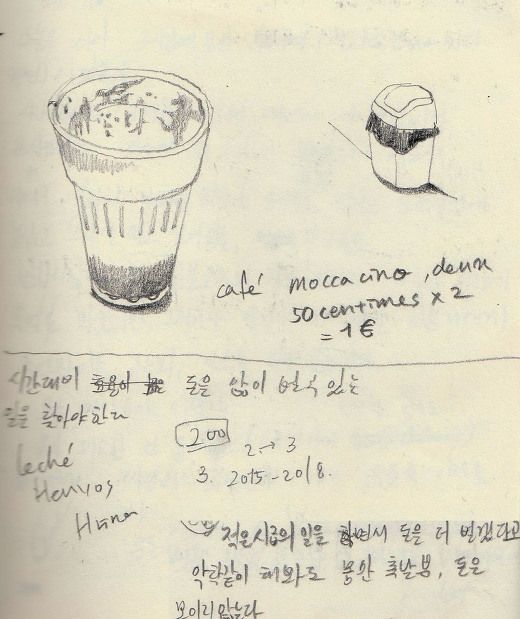 café moccacino, deux
50 centimes x 2
= 1 €
시간대비 효율이 높은 돈을 많이 벌 수 있는
일을 찾아야 한다
200
2 → 3
3. 2015-2018.
leché
Huevos
적은 시급의 일을 하면서 돈을 더 벌겠다고
악착같이 해봐도 몸만 축날 뿐, 돈은
모이지 않는다